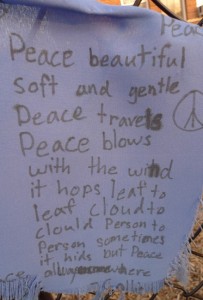 Peac
Peace beautiful
soft and gentle
Peace travels
Peace blows
with the wind
it hops leaf to
leaf cloud to
clould Person to
Person sometimes
it hids but Peace
here
ce